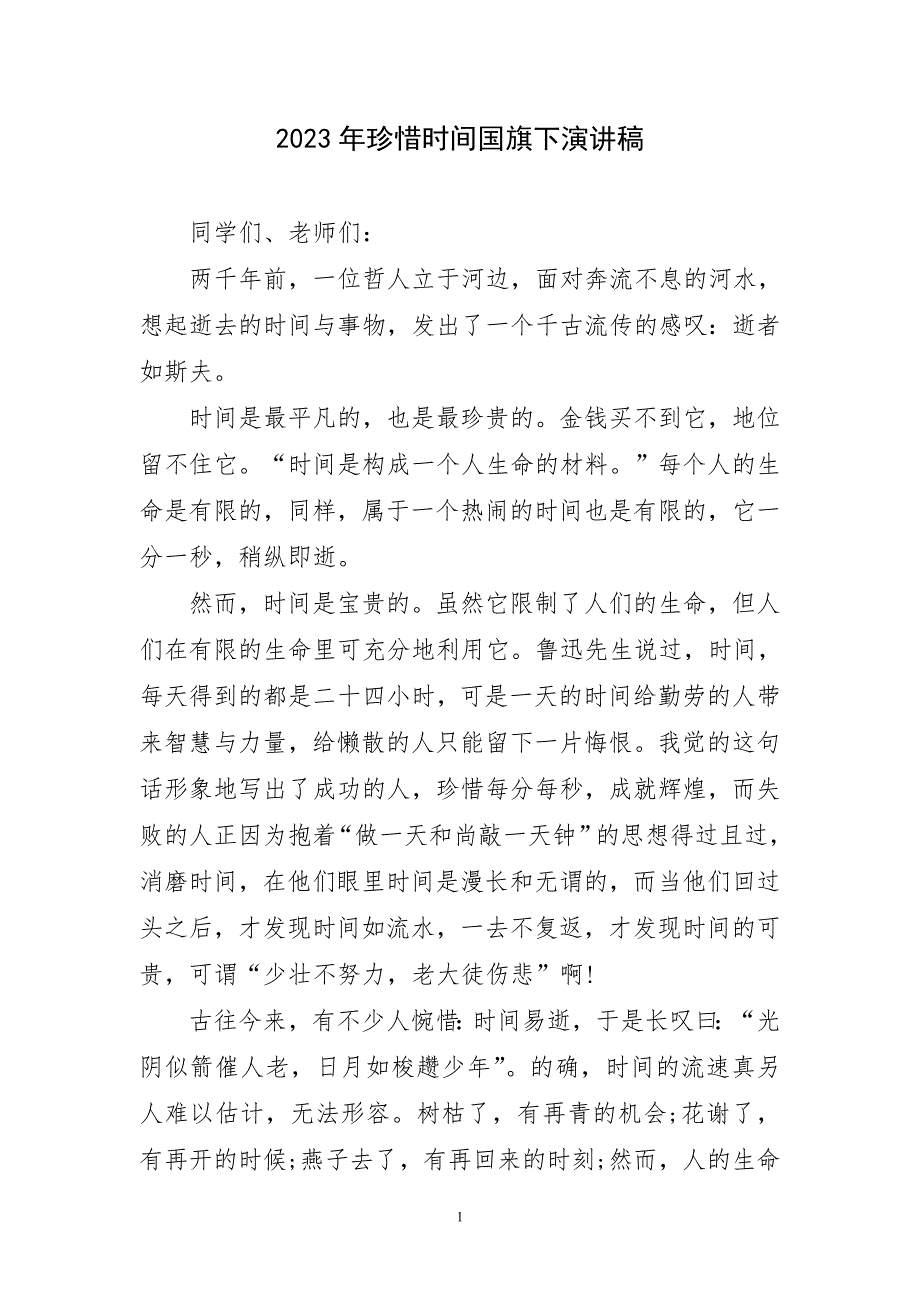 2023年珍惜时间国旗下演讲稿
同学们、老师们：
两千年前，一位哲人立于河边，面对奔流不息的河水，
想起逝去的时间与事物，发出了一个千古流传的感叹：逝者
如斯夫。
时间是最平凡的，也是最珍贵的。金钱买不到它，地位
留不住它。“时间是构成一个人生命的材料。”每个人的生
命是有限的，同样，属于一个热闹的时间也是有限的，它一
分一秒，稍纵即逝。
然而，时间是宝贵的。虽然它限制了人们的生命，但人
们在有限的生命里可充分地利用它。鲁迅先生说过，时间，
每天得到的都是二十四小时，可是一天的时间给勤劳的人带
来智慧与力量，给懒散的人只能留下一片悔恨。我觉的这句
话形象地写出了成功的人，珍惜每分每秒，成就辉煌，而失
败的人正因为抱着“做一天和尚敲一天钟”的思想得过且过，
消磨时间，在他们眼里时间是漫长和无谓的，而当他们回过
头之后，才发现时间如流水，一去不复返，才发现时间的可
贵，可谓“少壮不努力，老大徒伤悲”啊!
古往今来，有不少人惋惜：时间易逝，于是长叹曰：“光
阴似箭催人老，日月如梭趱少年”。的确，时间的流速真另
人难以估计，无法形容。树枯了，有再青的机会;花谢了，
有再开的时候;燕子去了，有再回来的时刻;然而，人的生命
1